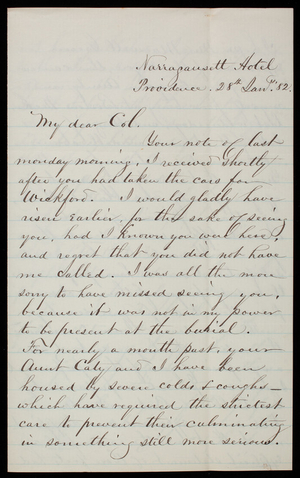 Narragansett Hotel
Providence, 28th Jany. '82.
My dear Col.
Your note of last
monday morning, I received shortly
after you had taken the cars for
Wickford. I would gladly have
risen earlier, for the sake of seeing
you, had I known you were here,
and regret that you did not have
me called. I was all the more
sorry to have missed seeing you,
because it was not in my power
to be present at the burial.
For nearly a month past, your
Aunt Caty and I have been
housed by severe colds & coughs—
which have required the strictest
care to prevent their culminating
in something still more serious.